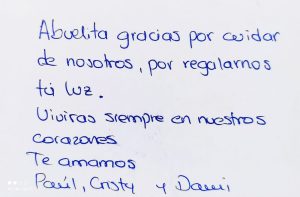 Abuelita gracias por cuidar
de nosotros, por regalarnos
tú luz.
Vivirás siempre en nuestros
corazones
Te amamos
Paúl, Cristy y Dami